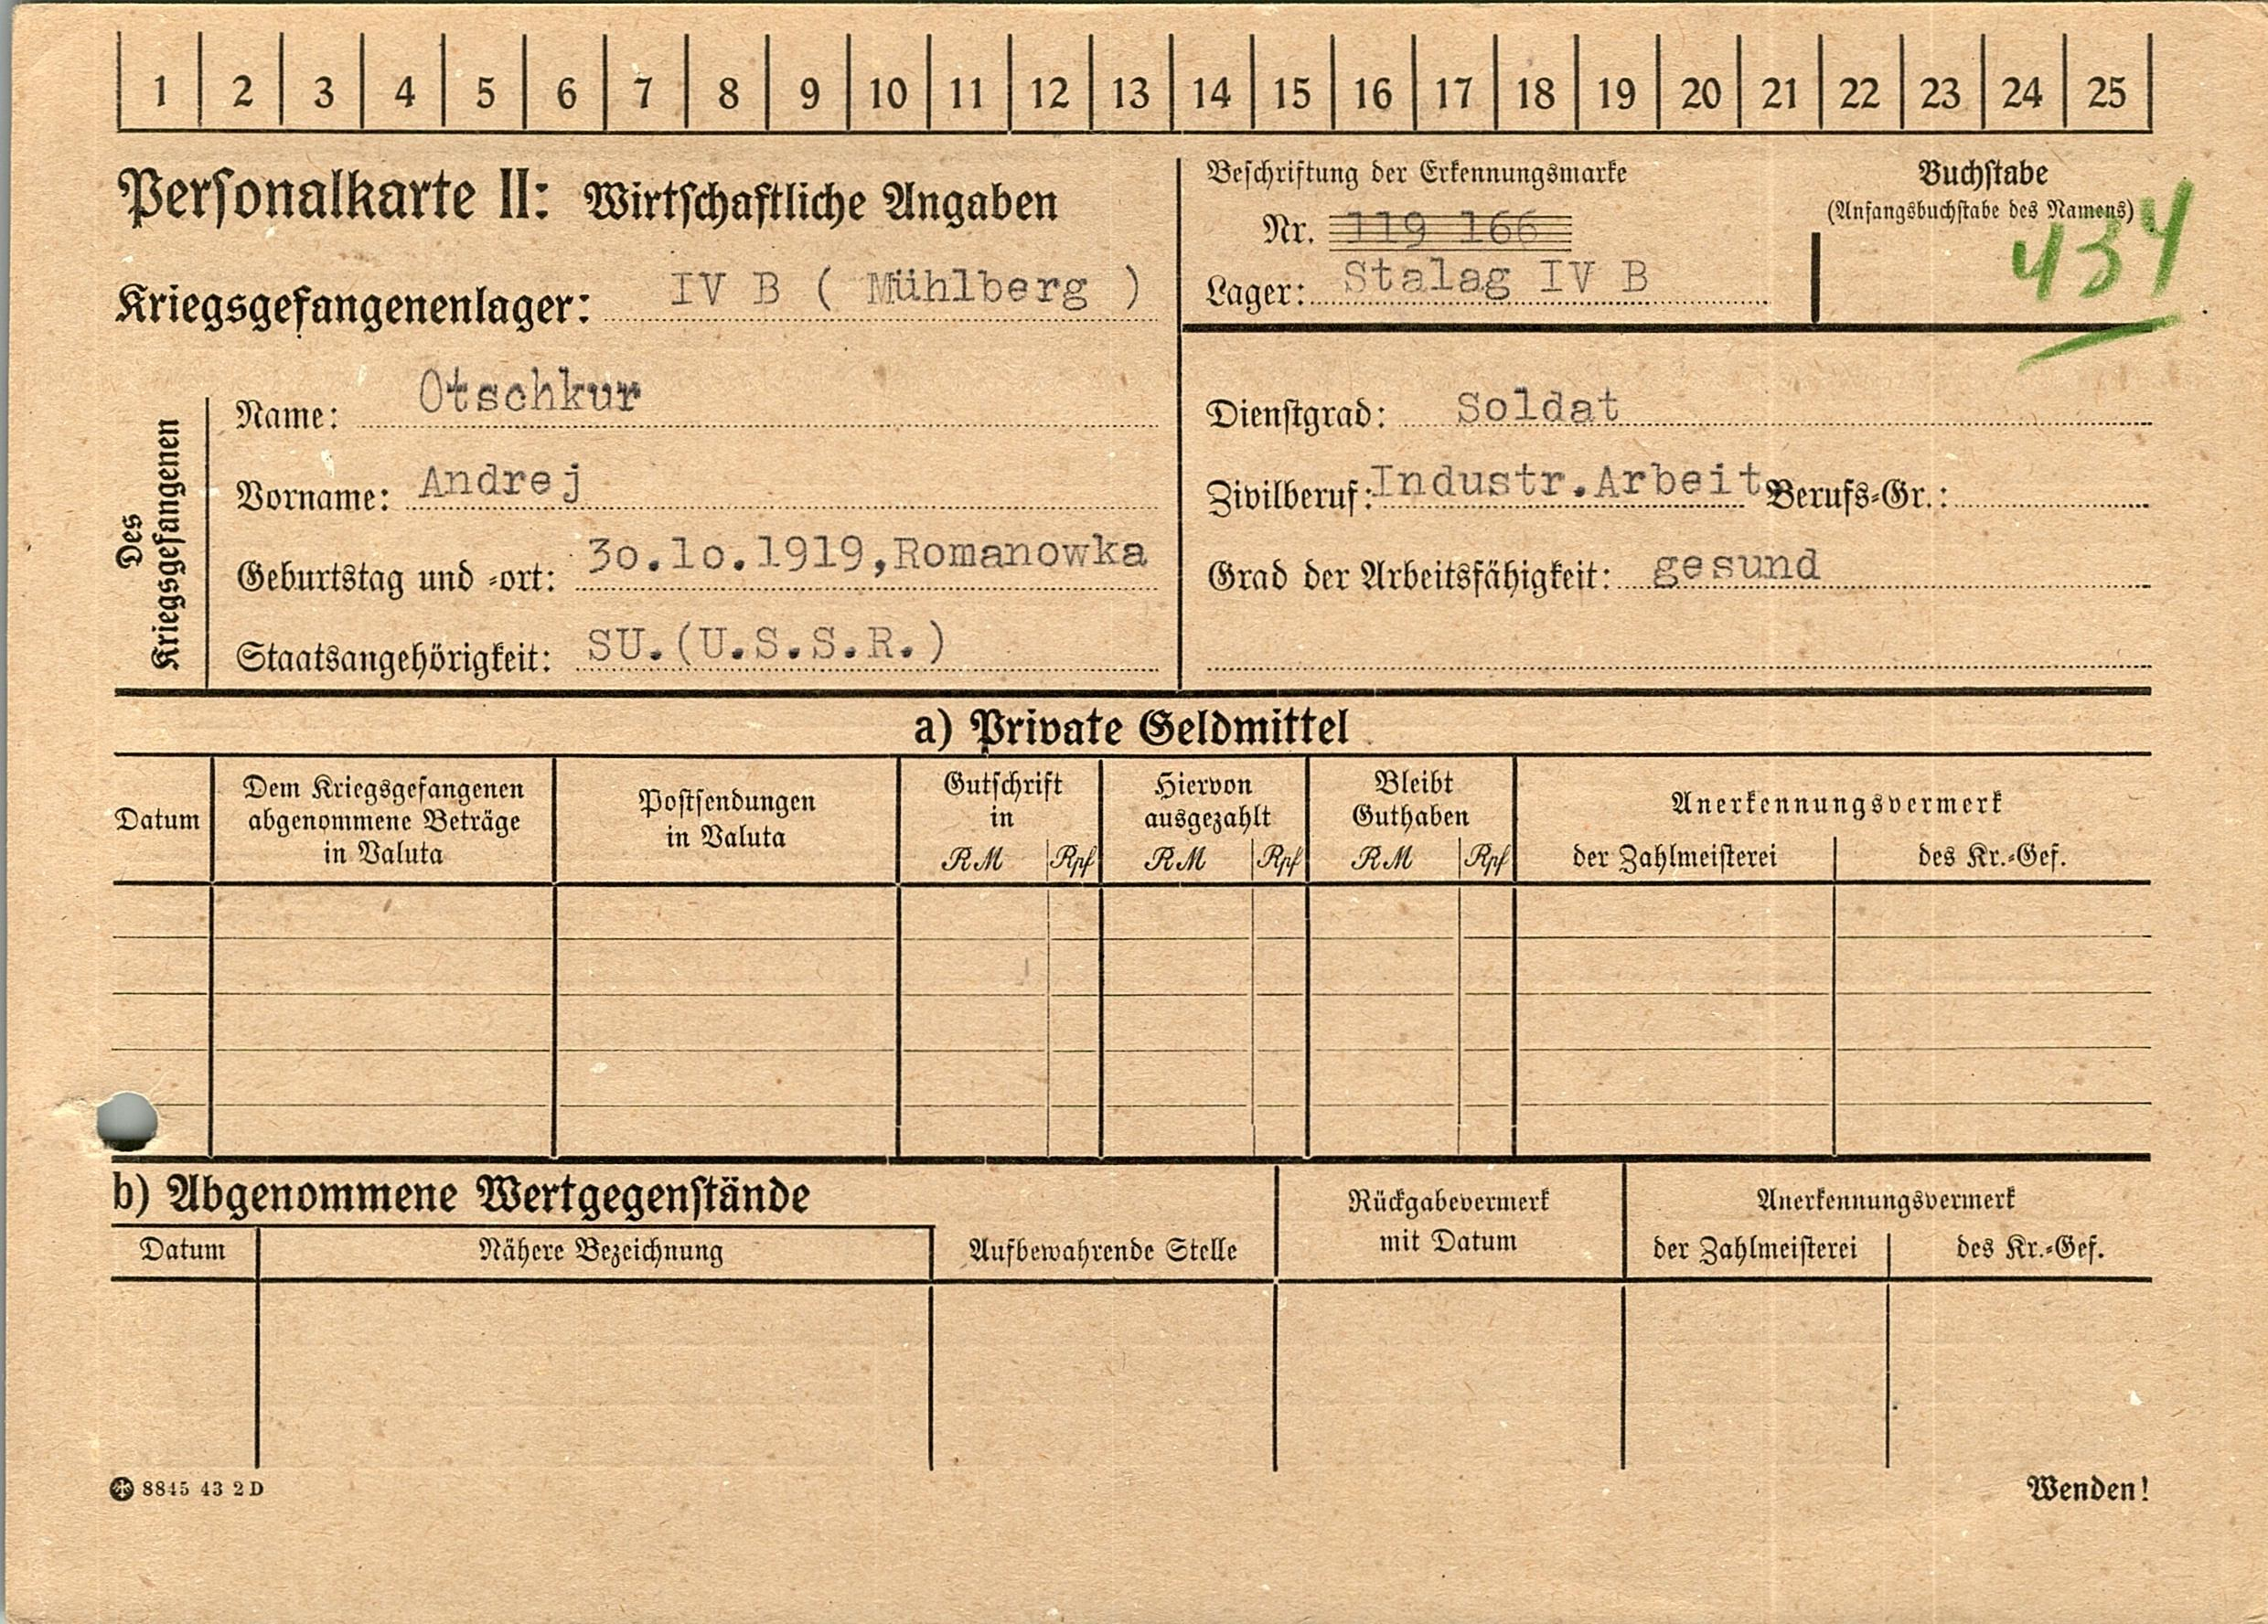 1 2 3 4 5 6 7 8 9 10 11 12 13 14 15 16 17 18 19 20 21 22 23 24 25
Personalkarte II: Wirtschaftliche Angaben
Kriegsgefangenenlager: IV B ( Mühlberg )
Beschriftung der Erkennungsmarke
Nr. 119 166
Lager: Stalag IV B
Buchstabe
(Anfangsbuchstabe des Namens)
434
Des Kriegsgefangenen
Name: Otschkur
Vorname: Andrej
Geburtstag und -ort: 3o.1o.1919,Romanowka
Staatsangehörigkeit: SU.(U.S.S.R.)
Dienstgrad: Soldat
Zivilberuf: Industr.Arbeit. Berufs-Gr.:
Grad der Arbeitsfähigkeit: gesund
a) Private Geldmittel
Datum
Dem Kriegsgefangenen
abgenommene Beträge
in Valuta
Postsendungen
in Valuta
Gutschrift
in
RM Rpf
Hiervon
ausgezahlt
RM Rpf
Bleibt
Guthaben
RM Rpf
Anerkennungsvermerk
der Zahlmeisterei des Kr.-Gef.
b) Abgenommene Wertgegenstände
Datum Nähere Bezeichnung
Aufbewahrende Stelle
Rückgabevermerk
mit Datum
Anerkennungsvermerk
der Zahlmeisterei des Kr.-Gef.
8845 43 2 D
Wenden!